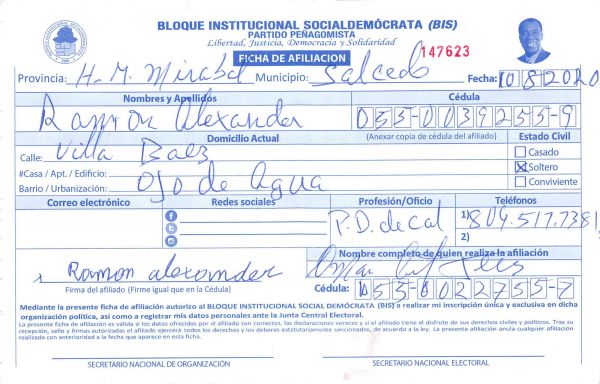 BLOQUE INSTITUCIONAL SOCIALDEMÓCRATA (BIS)
PARTIDO PEÑAGOMISTA
Libertad, Justicia, Democracia y Solidaridad
FICHA DE AFILIACION
147623
Provincia: H. M. Mirabal Municipio: Salcedo Fecha: 10 8 2020
Nombres y Apellidos Cédula
Ramon Alexander 055-0039255-9
Domicilio Actual (Anexar copia de cédula del afiliado) Estado Civil
Calle: Villa Baez Casado
#Casa / Apt. / Edificio: Soltero
Barrio / Urbanización: Ojo de Agua Conviviente
Correo electrónico Redes sociales Profesión/Oficio Teléfonos
P.D. de Cal 1) 809.517.7381
2)
Nombre completo de quien realiza la afiliación
Ramon alexander
Firma del afiliado (Firme igual que en la Cédula) Cédula: 055-0022755-7
Mediante la presente ficha de afiliación autorizo al BLOQUE INSTITUCIONAL SOCIAL DEMÓCRATA (BIS) a realizar mi inscripción única y exclusiva en dicha
organización política, así como a registrar mis datos personales ante la Junta Central Electoral.
La presente ficha de afiliación es válida si los datos ofrecidos por el afiliado son correctos, las declaraciones veraces y si el afiliado tiene el disfrute de sus derechos civiles y políticos. Tras su
recepción, sello y firmas autorizadas el afiliado ejercerá todos los derechos y los deberes estatutariamente sancionados, de acuerdo a la ley. La presente afiliación anula cualquier afiliación
realizada con anterioridad a la fecha que aparece en esta ficha.
SECRETARIO NACIONAL DE ORGANIZACIÓN SECRETARIO NACIONAL ELECTORAL